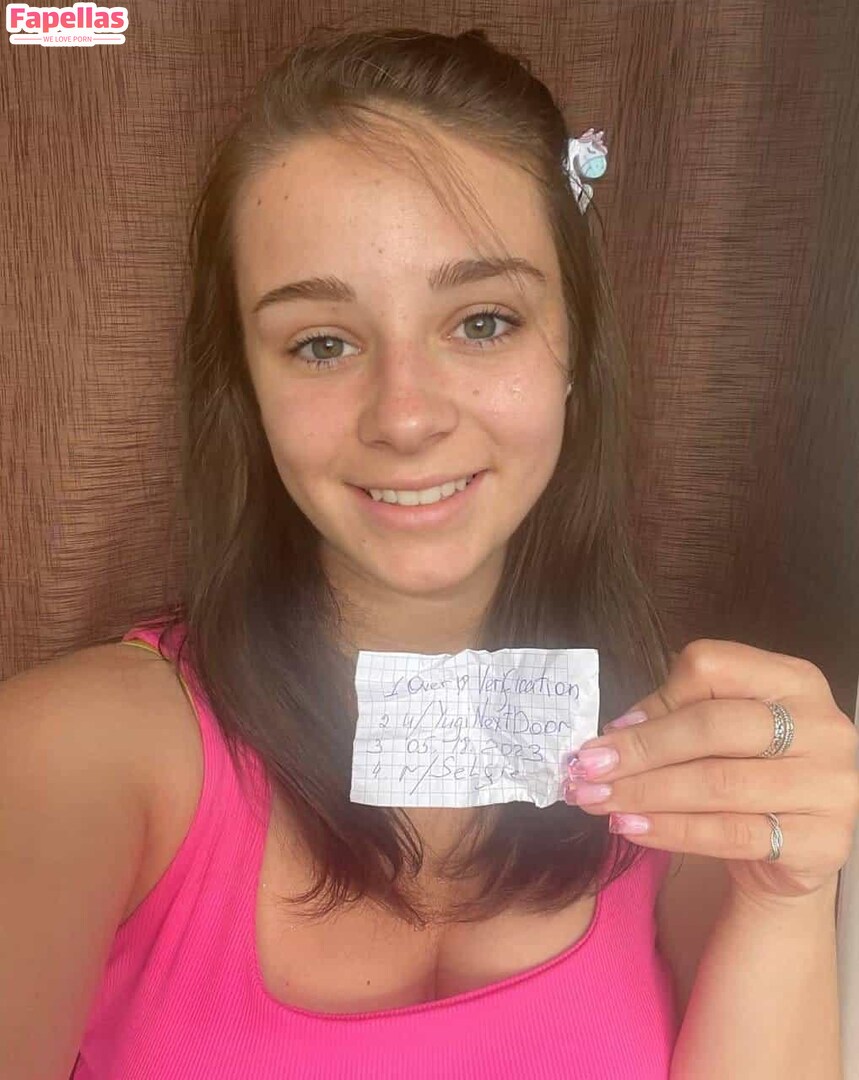 Fapellas
WE LOVE PORN
1 Over 18 Verification
2 u/YugiNextDoor
3 05.12.2023
4 r/Selfie